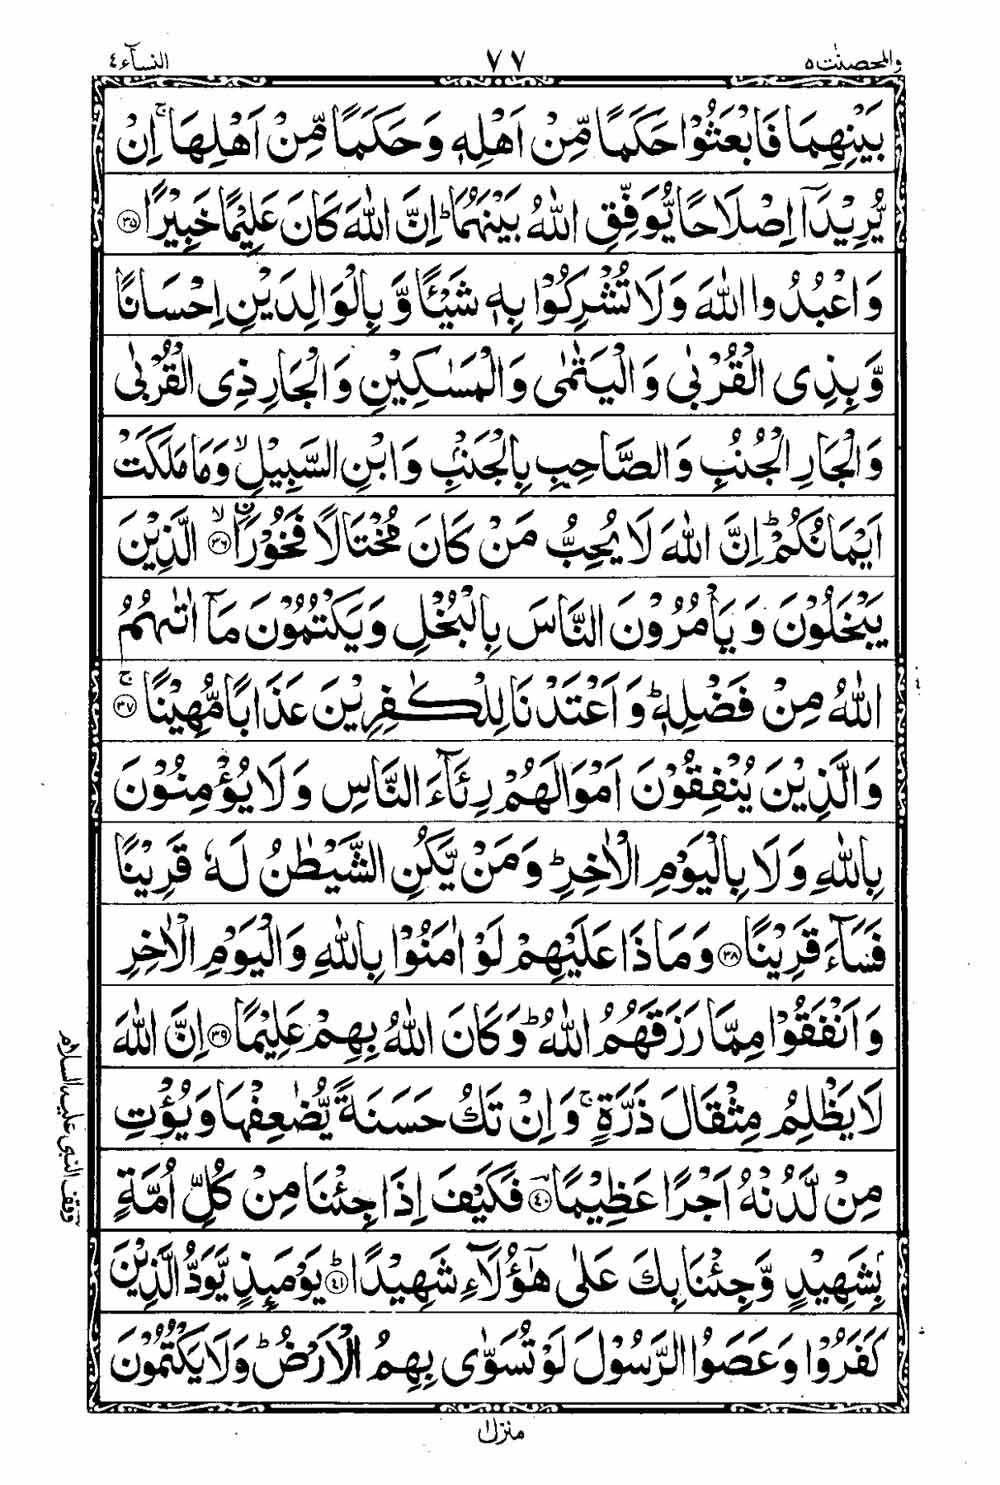 والمحصنٰت ۵ ۷۷ النسآء ٤
بَيْنِهِمَا فَابْعَثُوْا حَكَمًا مِّنْ اَهْلِهٖ وَحَكَمًا مِّنْ اَهْلِهَا ۚ اِنْ
يُّرِيْدَآ اِصْلَاحًا يُّوَفِّقِ اللّٰهُ بَيْنَهُمَا ؕ اِنَّ اللّٰهَ كَانَ عَلِيْمًا خَبِيْرًا ﴿۳۵﴾
وَاعْبُدُوا اللّٰهَ وَلَا تُشْرِكُوْا بِهٖ شَيْـًٔا وَّبِالْوَالِدَيْنِ اِحْسَانًا
وَّبِذِى الْقُرْبٰى وَالْيَتٰمٰى وَالْمَسٰكِيْنِ وَالْجَارِ ذِى الْقُرْبٰى
وَالْجَارِ الْجُنُبِ وَالصَّاحِبِ بِالْجَنْۢبِ وَابْنِ السَّبِيْلِ ۙ وَمَا مَلَكَتْ
اَيْمَانُكُمْ ؕ اِنَّ اللّٰهَ لَا يُحِبُّ مَنْ كَانَ مُخْتَالًا فَخُوْرَاۨ ﴿۳۶﴾ ۙ الَّذِيْنَ
يَبْخَلُوْنَ وَيَاْمُرُوْنَ النَّاسَ بِالْبُخْلِ وَيَكْتُمُوْنَ مَآ اٰتٰىهُمُ
اللّٰهُ مِنْ فَضْلِهٖ ؕ وَاَعْتَدْنَا لِلْكٰفِرِيْنَ عَذَابًا مُّهِيْنًا ﴿۳۷﴾ ۚ
وَالَّذِيْنَ يُنْفِقُوْنَ اَمْوَالَهُمْ رِئَآءَ النَّاسِ وَلَا يُؤْمِنُوْنَ
بِاللّٰهِ وَلَا بِالْيَوْمِ الْاٰخِرِ ؕ وَمَنْ يَّكُنِ الشَّيْطٰنُ لَهٗ قَرِيْنًا
فَسَآءَ قَرِيْنًا ﴿۳۸﴾ وَمَاذَا عَلَيْهِمْ لَوْ اٰمَنُوْا بِاللّٰهِ وَالْيَوْمِ الْاٰخِرِ
وَاَنْفَقُوْا مِمَّا رَزَقَهُمُ اللّٰهُ ؕ وَكَانَ اللّٰهُ بِهِمْ عَلِيْمًا ﴿۳۹﴾ اِنَّ اللّٰهَ
لَا يَظْلِمُ مِثْقَالَ ذَرَّةٍ ۚ وَاِنْ تَكُ حَسَنَةً يُّضٰعِفْهَا وَيُؤْتِ
مِنْ لَّدُنْهُ اَجْرًا عَظِيْمًا ﴿۴۰﴾ فَكَيْفَ اِذَا جِئْنَا مِنْ كُلِّ اُمَّةٍۭ
بِشَهِيْدٍ وَّجِئْنَا بِكَ عَلٰى هٰٓؤُلَآءِ شَهِيْدًا ﴿۴۱﴾ ؕ يَوْمَئِذٍ يَّوَدُّ الَّذِيْنَ
كَفَرُوْا وَعَصَوُا الرَّسُوْلَ لَوْ تُسَوّٰى بِهِمُ الْاَرْضُ ؕ وَلَا يَكْتُمُوْنَ
وقف النبى عليه السلام
منزل ۱